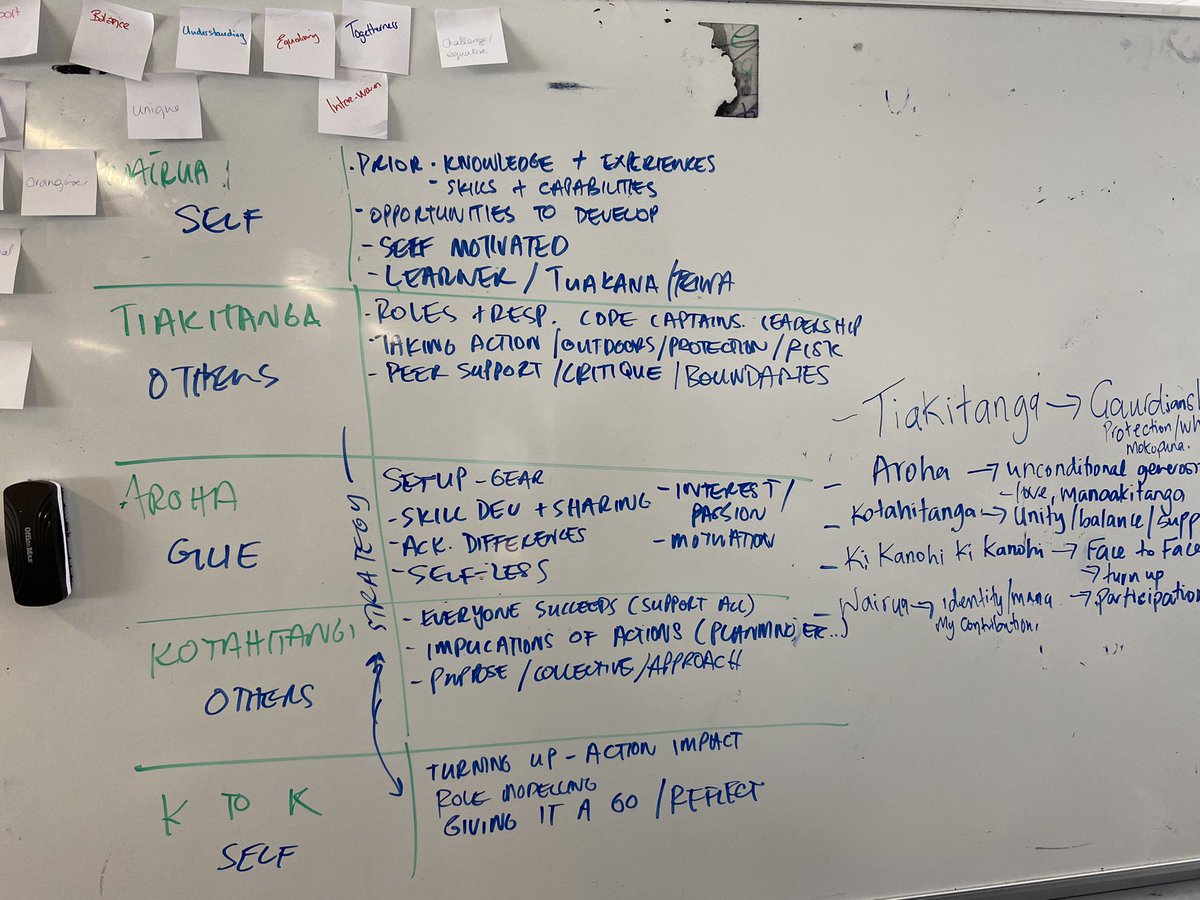 port
Balance
Understanding
Equalising
Togetherness
Challenge/
equalise
unique
Inter-woven
Orangiser
WAIRUA:
SELF
· PRIOR · KNOWLEDGE + EXPERIENCES
- SKILLS + CAPABILITIES
- OPPORTUNITIES TO DEVELOP
- SELF MOTIVATED
- LEARNER / TUAKANA / TEINA
TIAKITANGA
OTHERS
- ROLES + RESP. CODE CAPTAINS. LEADERSHIP
- TAKING ACTION / OUTDOORS / PROTECTION / RISK
- PEER SUPPORT / CRITIQUE / BOUNDARIES
STRATEGY
AROHA
GLUE
SETUP - GEAR
- SKILL DEV + SHARING
- ACK. DIFFERENCES
- SELF-LESS
- INTEREST /
PASSION
- MOTIVATION
KOTAHITANGA
OTHERS
- EVERYONE SUCCEEDS (SUPPORT ALL)
- IMPLICATIONS OF ACTIONS (PLANNING, ETC...)
- PURPOSE / COLLECTIVE / APPROACH
K TO K
SELF
TURNING UP - ACTION IMPACT
ROLE MODELLING
GIVING IT A GO / REFLECT
- Tiakitanga → Gaurdiansh
Protection/wh
mokopuna.
- Aroha → unconditional generosi
- love, manaakitanga
- Kotahitanga → Unity/balance/supp
- Ki Kanohi ki kanohi → Face to Face
→ turn up
→ participation
- Wairua → identity/mana
My contribution.
OfficeMax